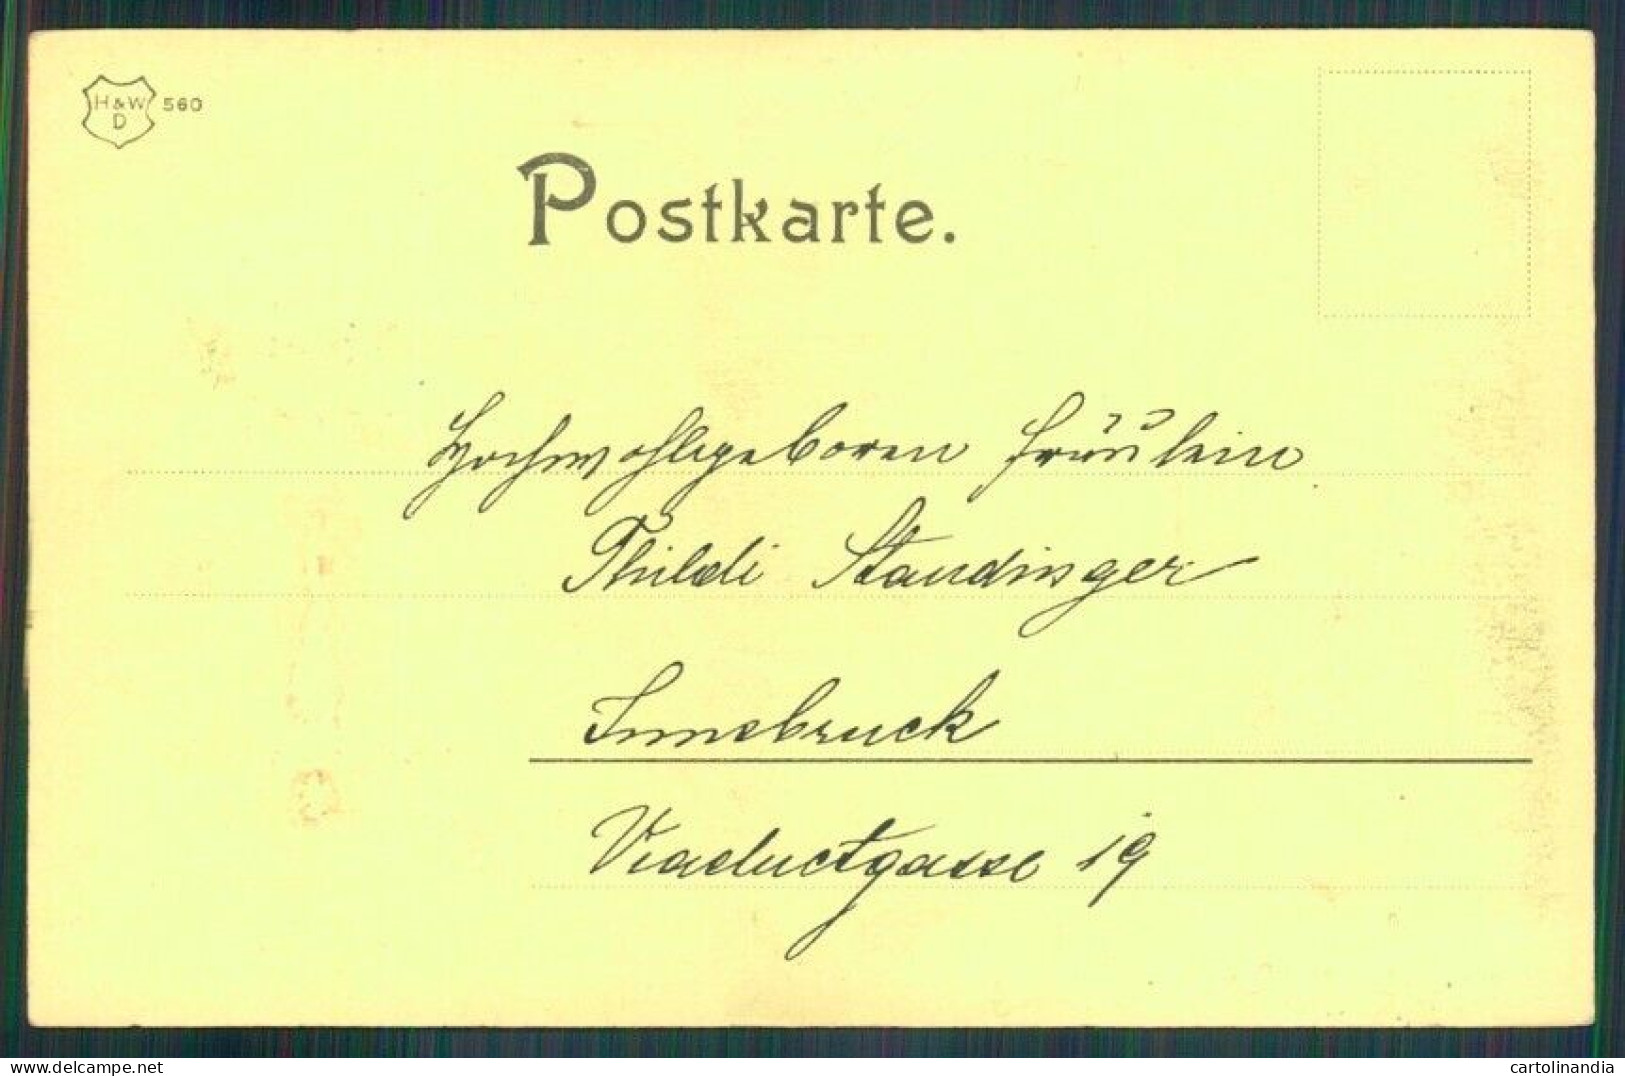 H & W 560
D
Postkarte.
Hochwohlgeboren Fräulein
Thildi Staudinger
Innsbruck
Viaductgasse 19
www.delcampe.net
cartolinandia